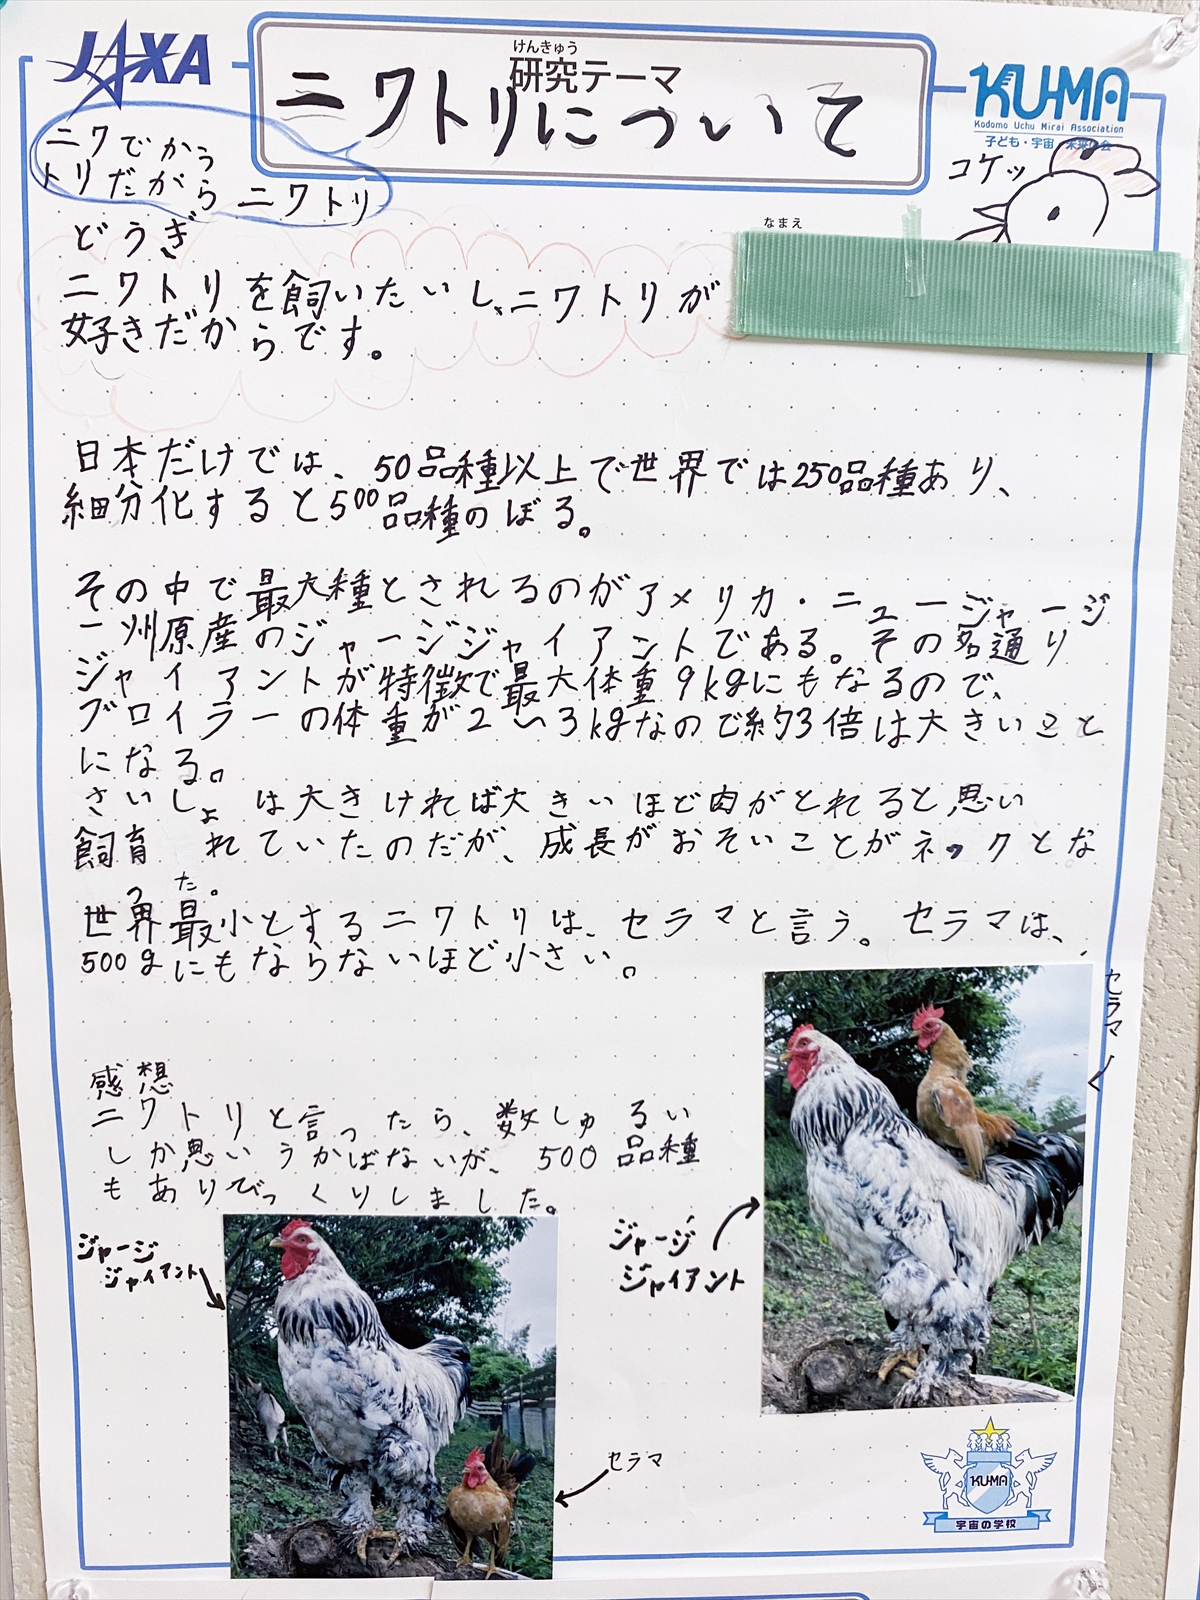 JAXA
けんきゅう
研究テーマ
ニワトリについて
KU-MA
Kodomo Uchu Mirai Association
子ども・宇宙・未来の会
コケッ
ニワでかう
トリだがら ニワトリ
なまえ
どうぎ
ニワトリを飼いたいし、ニワトリが
好きだからです。
日本だけでは、50品種以上で世界では250品種あり、
細分化すると500品種のぼる。
その中で最大種とされるのがアメリカ・ニュージャージ
ー州原産のジャージジャイアントである。その名通り
ジャイアントが特徴で最大体重9kgにもなるので、
ブロイラーの体重が2〜3kgなので約3倍は大きいこと
になる。
さいしょは大きければ大きいほど肉がとれると思い
飼育 れていたのだが、成長がおそいことがネックとな
った。
世界最小とするニワトリは、セラマと言う。セラマは、
500gにもならないほど小さい。
セラマ
感想
ニワトリと言ったら、数しゅるい
しか思いうかばないが、500品種
もありびっくりしました。
ジャージ
ジャイアント
ジャージ
ジャイアント
セラマ
KUMA
宇宙の学校